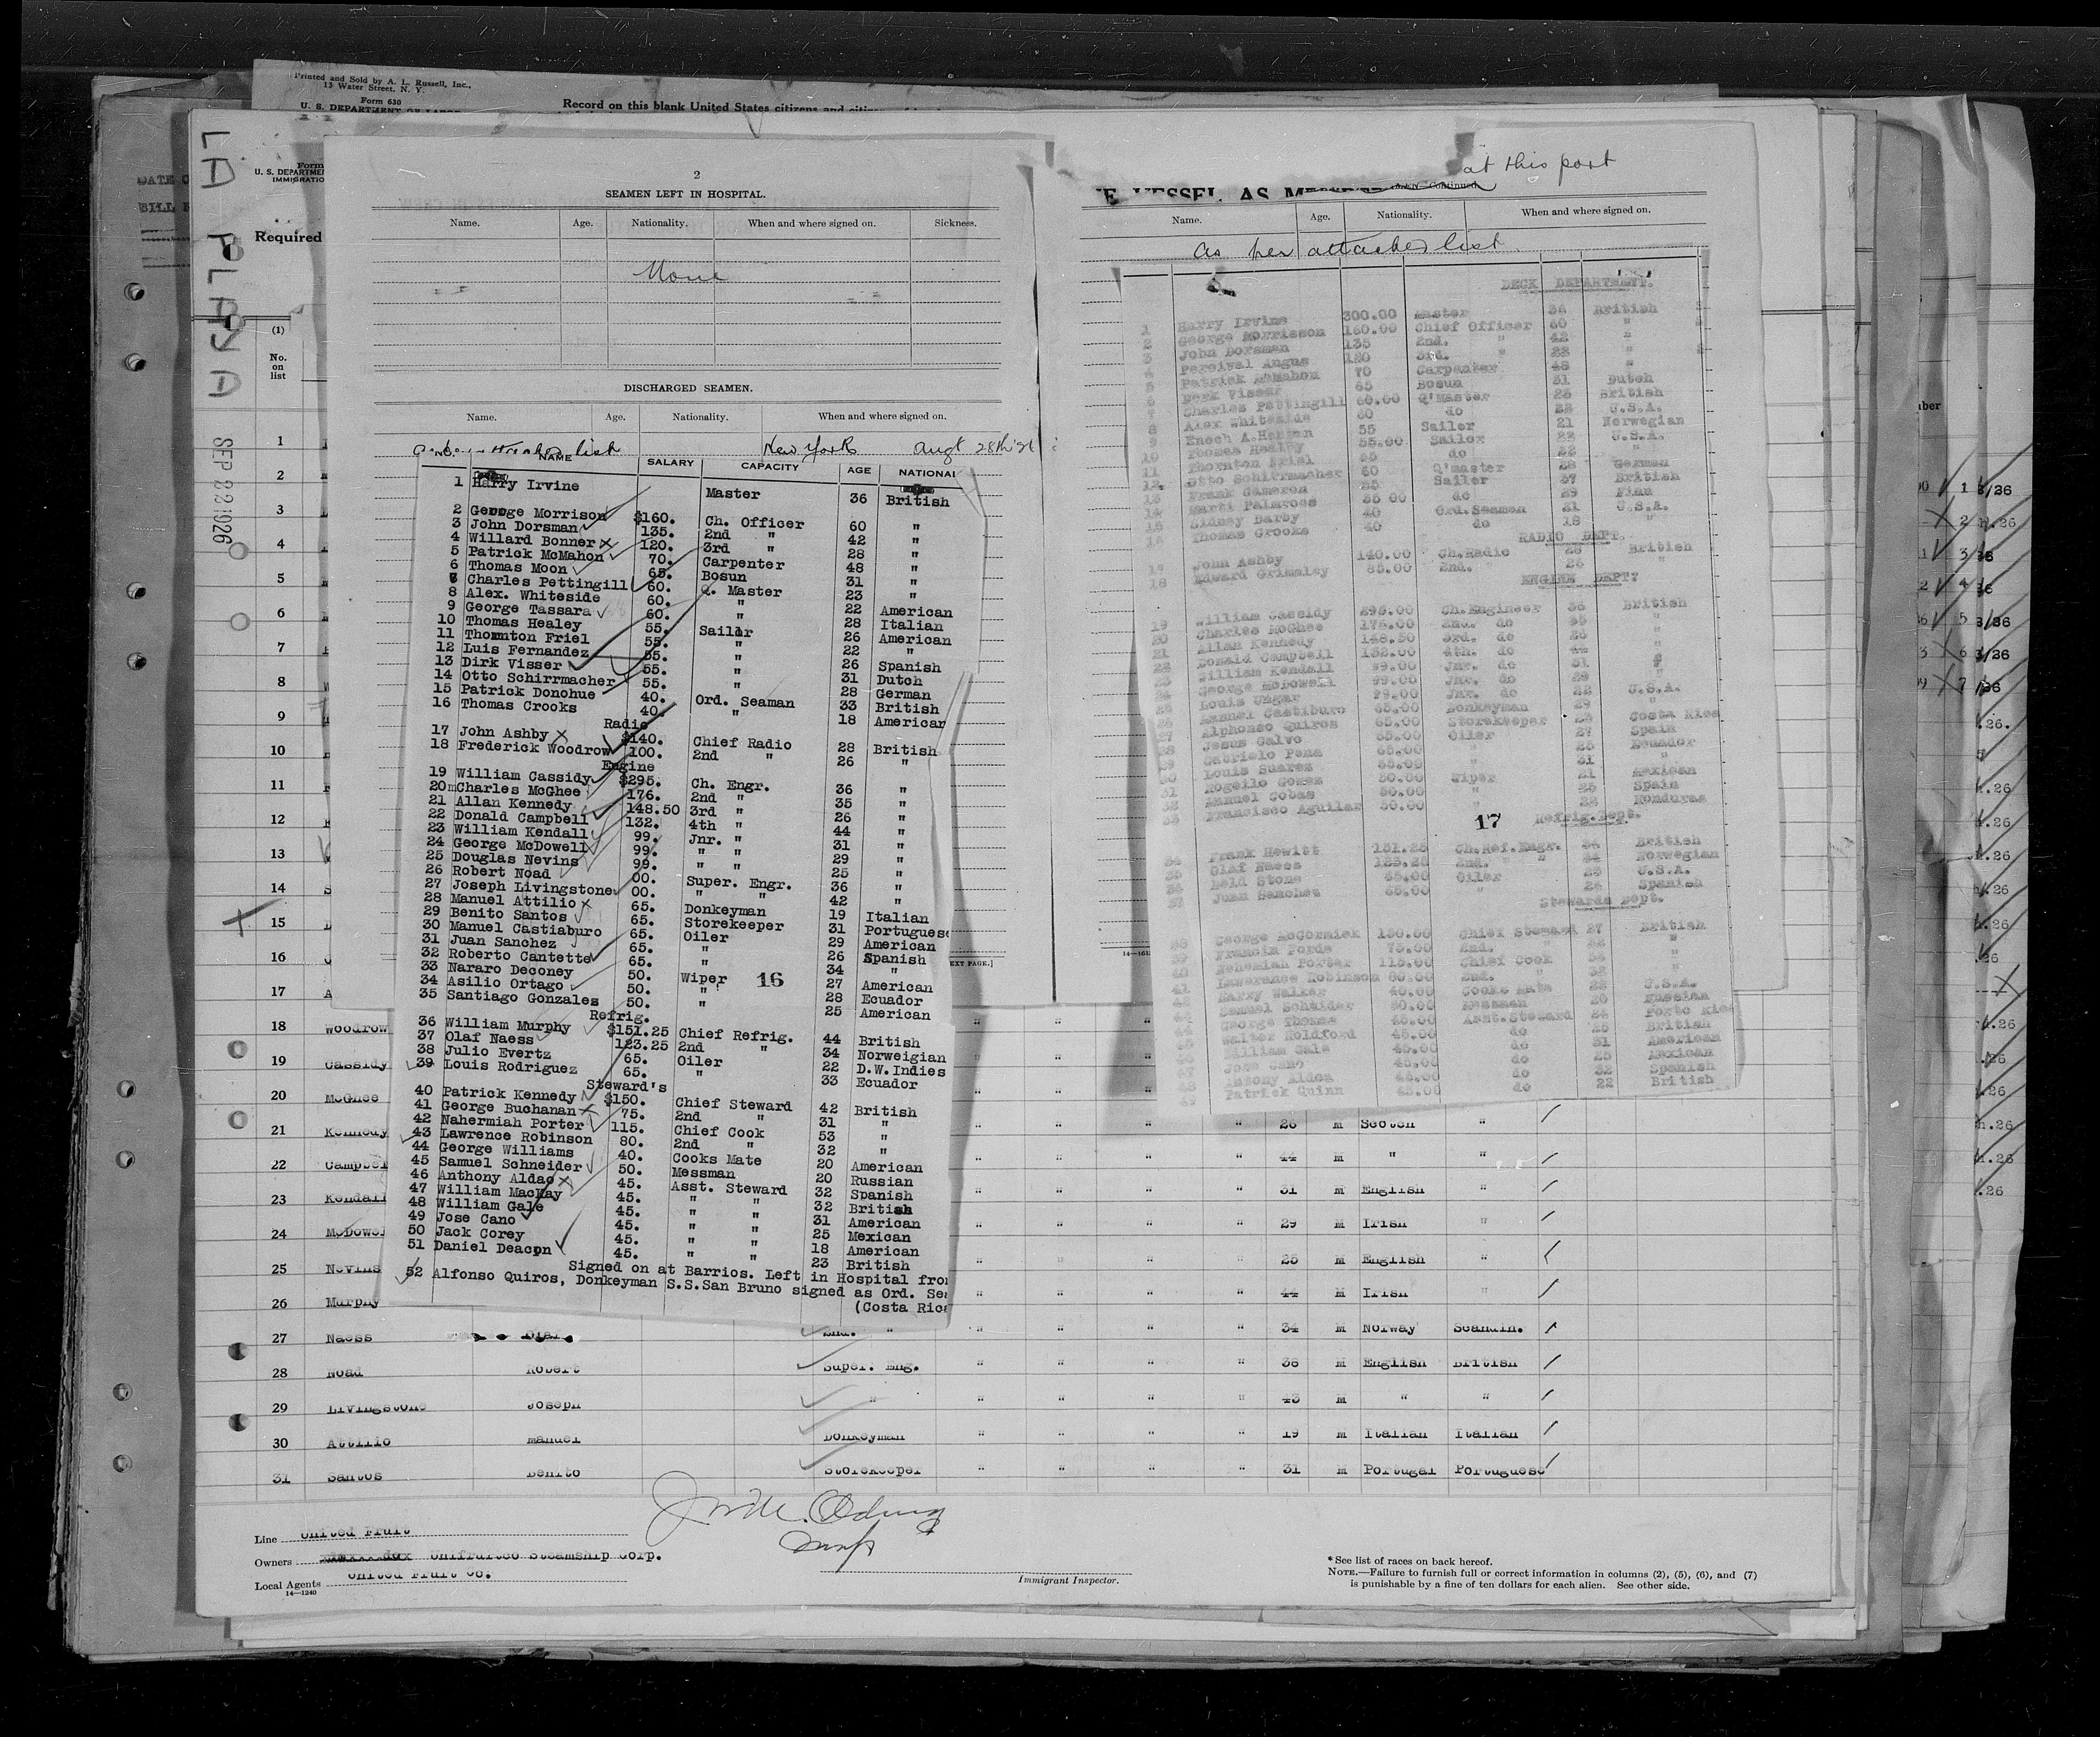 Printed and Sold by A. L. Russell, Inc.,
13 Water Street, N. Y.
Form 630
U. S. DEPARTMENT OF LABOR
Record on this blank United States citizens and
LA PLAYA
SEP 22 1926
Form
U. S. DEPARTMENT
IMMIGRATIO
Required
(1)
No.
on
list
2
SEAMEN LEFT IN HOSPITAL.
Name. Age. Nationality. When and where signed on. Sickness.
None
DISCHARGED SEAMEN.
Name. Age. Nationality. When and where signed on.
as per attached list New York Augt 28th '26
NO. NAME SALARY CAPACITY AGE NATIONAL
1 Harry Irvine Master 36 British
2 George Morrison $160. Ch. Officer 60 "
3 John Dorsman 135. 2nd " 42 "
4 Willard Bonner 120. 3rd " 28 "
5 Patrick McMahon 70. Carpenter 48 "
6 Thomas Moon 65. Bosun 31 "
7 Charles Pettingill 60. Q. Master 23 "
8 Alex. Whiteside 60. " 22 American
9 George Tassara 60. " 28 Italian
10 Thomas Healey 55. Sailor 26 American
11 Thornton Friel 55. " 22 "
12 Luis Fernandez 55. " 26 Spanish
13 Dirk Visser 55. " 31 Dutch
14 Otto Schirrmacher 55. " 28 German
15 Patrick Donohue 40. Ord. Seaman 33 British
16 Thomas Crooks 40. " 18 American
Radio
17 John Ashby $140. Chief Radio 28 British
18 Frederick Woodrow 100. 2nd " 26 "
Engine
19 William Cassidy $295. Ch. Engr. 36 "
20 Charles McGhee 176. 2nd " 35 "
21 Allan Kennedy 148.50 3rd " 26 "
22 Donald Campbell 132. 4th " 44 "
23 William Kendall 99. Jnr. " 31 "
24 George McDowell 99. " " 29 "
25 Douglas Nevins 99. " " 25 "
26 Robert Noad 00. Super. Engr. 36 "
27 Joseph Livingstone 00. " " 42 "
28 Manuel Attilio 65. Donkeyman 19 Italian
29 Benito Santos 65. Storekeeper 31 Portuguese
30 Manuel Castiaburo 65. Oiler 29 American
31 Juan Sanchez 65. " 26 Spanish
32 Roberto Cantette 65. " 34 "
33 Nararo Deconey 50. Wiper 27 American
34 Asilio Ortago 50. " 28 Ecuador
35 Santiago Gonzales 50. " 25 American
16
Refrig.
36 William Murphy $151.25 Chief Refrig. 44 British
37 Olaf Naess 123.25 2nd " 34 Norweigian
38 Julio Evertz 65. Oiler 22 D.W.Indies
39 Louis Rodriguez 65. " 33 Ecuador
Steward's
40 Patrick Kennedy $150. Chief Steward 42 British
41 George Buchanan 75. 2nd " 31 "
42 Nahermiah Porter 115. Chief Cook 53 "
43 Lawrence Robinson 80. 2nd " 32 "
44 George Williams 40. Cooks Mate 20 American
45 Samuel Schneider 50. Messman 20 Russian
46 Anthony Aldao 45. Asst. Steward 32 Spanish
47 William MacKay 45. " " 32 British
48 William Gale 45. " " 31 American
49 Jose Cano 45. " " 25 Mexican
50 Jack Corey 45. " " 18 American
51 Daniel Deacon 45. " " 23 British
Signed on at Barrios. Left in Hospital from
52 Alfonso Quiros, Donkeyman S.S.San Bruno signed as Ord. Sea
(Costa Rica
at this port
VESSEL AS
Continued
Name. Age. Nationality. When and where signed on.
As per attached list
DECK DEPARTMENT.
1 Harry Irvine 300.00 Master 36 British
2 George Morrisson 160.00 Chief Officer 60 "
3 John Dorsman 135 2nd. " 42 "
4 Percival Angus 120 3rd. " 28 "
5 Patrick McMahon 70 Carpenter 48 "
6 Derk Visser 65 Bosun 31 Dutch
7 Charles Pettingill 60.00 Q'Master 23 British
8 Alex Whiteside 60 do 22 U.S.A.
9 Enoch A. 55 Sailor 21 Norwegian
10 Thomas Healey 55.00 Sailor 22 U.S.A.
11 Thornton Friel 55 do 22 "
12. Otto Schirrmacher 60 Q'master 28 German
13 Frank Cameron 55 Sailor 37 British
14 Marti Palmroos 55 00 do 29 Finn
15 Sidney Darby 40 Ord.Seaman 21 U.S.A.
16 Thomas Crooks 40 do 18 "
RADIO DEPT.
17 John Ashby 140.00 Ch.Radio 28 British
18 Edward Grimsley 85.00 2nd. " 26 "
ENGINE DEPT:
19 William Cassidy 295.00 Ch.Engineer 36 British
20 Charles McGhee 176.00 2nd. do 35 "
21 Allan Kennedy 148.50 3rd. do 26 "
22 Donald Campbell 132.00 4th. do 44 "
23 William Kendall 99.00 Jnr. do 31 "
24 George McDowell 99.00 Jnr. do 29 "
25 Louis Ungar 99.00 Jnr. do 22 U.S.A.
26 Manuel Castiburo 65.00 Donkeyman 29 "
27 Alphonso Quiros 65.00 Storekeeper 28 Costa Rica
28 Jesus Calvo 65.00 Oiler Spain
29 Gabrielo Pena 65.00 " 25 Ecuador
30 Louis Suarez 65.00 " 31 "
31 Rogelio Gomez 50.00 Wiper 21 Mexican
32 Manuel Cobas 50.00 " 25 Spain
33 Francisco Aguilar 50.00 " 22 Honduras
17
Refrig.Dept.
34 Frank Hewitt 151.25 Ch.Ref.Engr. British
35 Olaf Naess 123.25 2nd. " " 34 Norwegian
36 Stone 65.00 Oiler U.S.A.
37 Juan Sanches 65.00 " 26 Spanish
Stewards Dept.
38 George McCormick 150.00 Chief Steward 27 British
39 Francis Forde 75.00 2nd. " "
40 Nehemiah Porter 115.00 Chief Cook "
41 Lawerance Robinson 80.00 2nd. " 32 "
Harry Walker 40.00 Cooks Mate U.S.A.
Samuel Schnider 50.00 Messman 20 Russian
44 George Thomas 45.00 Asst.Steward 24 Porto Rico
Walter Holdford 45.00 do 25 British
William Gale 45.00 do 31 American
Jose Cano 45.00 do 25 Mexican
Antony Aldoa 45.00 do 32 Spanish
49 Patrick Quinn 45.00 do 22 British
EXT PAGE.]
1
2
3
4
5
6
7
8
9
10
11
12
13
14
15
16
17
18 Woodrow
19 Cassidy
20 McGhee
21 Kennedy 26 M Scotch "
22 Campbel 44 M " "
23 Kendall 31 M English "
24 McDowel 29 M Irish "
25 Nevins 25 M English "
26 Murphy 44 M Irish "
27 Naess Olaf 2nd. " 34 M Norway Scandin.
28 Noad Robert Super. Eng. 36 M English British
29 Livingstone Joseph " 43 M " "
30 Attilio Manuel Donkeyman 19 M Italian Italian
31 Santos Benito Storekeeper 31 M Portugal Portuguese
Line United Fruit
Owners Unifruitco Steamship Corp.
Local Agents United Fruit Co.
14—1240
Immigrant Inspector.
* See list of races on back hereof.
NOTE.—Failure to furnish full or correct information in columns (2), (5), (6), and (7)
is punishable by a fine of ten dollars for each alien. See other side.